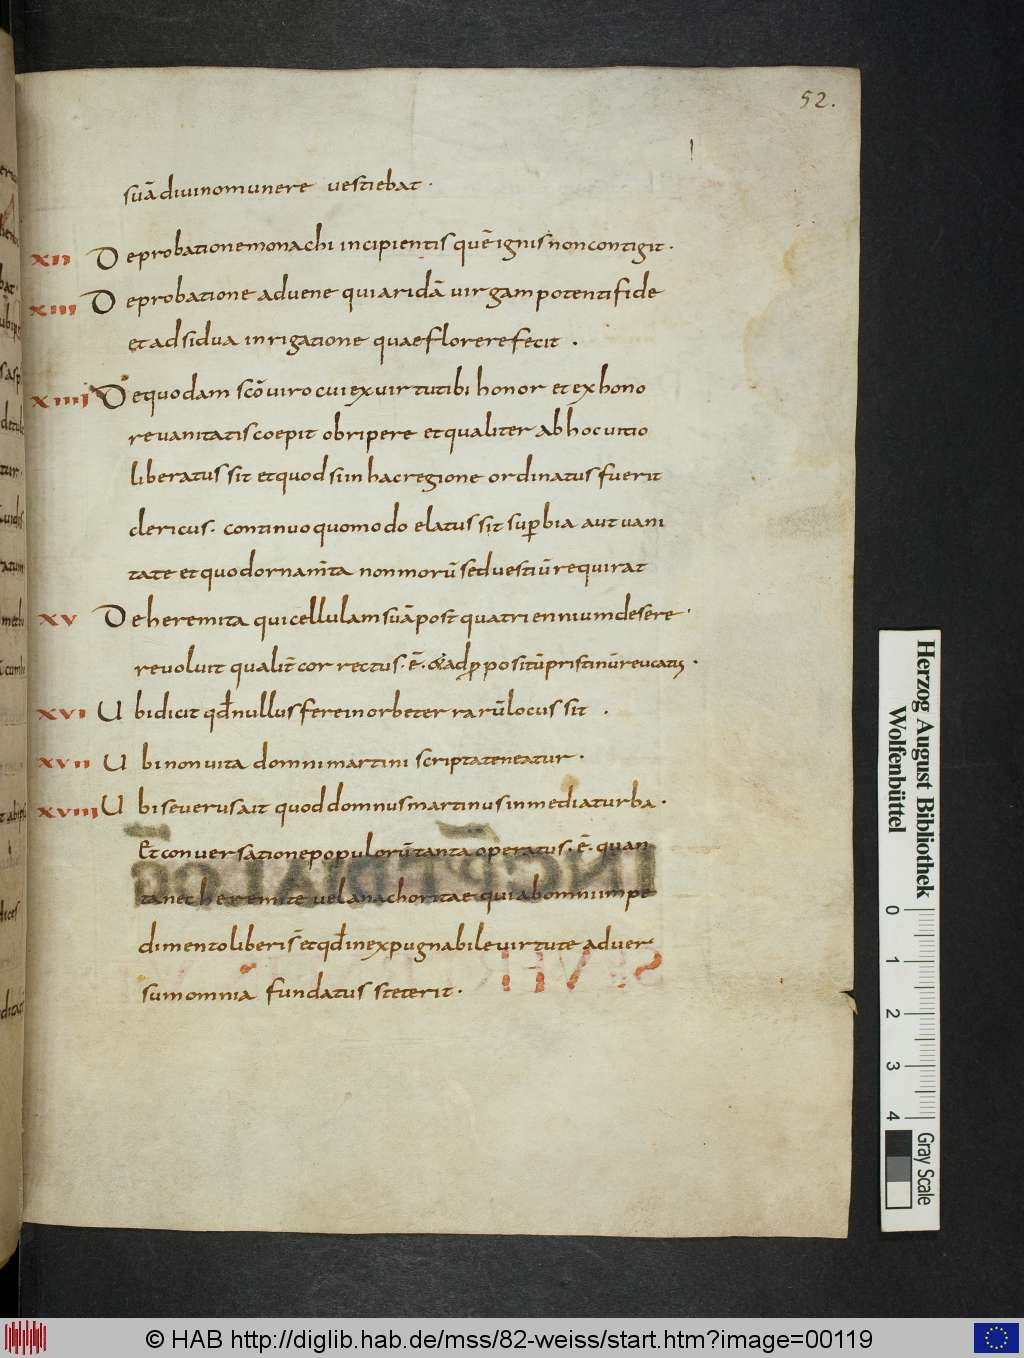 52.
suā diuino munere uestiebat.
XII De probatione monachi incipientis quē ignis non contigit.
XIII De probatione aduene qui aridā uirgam potenti fide
et adsidua inrigatione quae florere fecit.
XIIIJ De quodam scō uiro cui ex uirtutibi honor et ex hono
re uanitatis coepit obripere et qualiter ab hoc uitio
liberatus sit et quod si in hac regione ordinatus fuerit
clericus. continuo quomodo elatus sit supbia aut uani
tate et quod ornam̄ta non morū sed uestiū requirat
XV De heremita qui cellulam suā post quatriennium desere
re uoluit qualit̄ correctus. ē. & ad ppositū pristinū reuocatus.
XVI Ubi dicit qđ nullus fere in orbe terrarū locus sit.
XVII Ubi non uita domni martini scripta teneatur.
XVIII Ubi seuerus ait quod domnus martinus in media turba.
Et conuersatione populorū tanta operatus. ē. quan
ta nec heremite uel anachoritae qui ab omni impe
dimento liberis̄ et qđ inexpugnabile uirtute aduer
sum omnia fundatus steterit.
Herzog August Bibliothek
Wolfenbüttel
0 1 2 3 4
Gray Scale
© HAB http://diglib.hab.de/mss/82-weiss/start.htm?image=00119